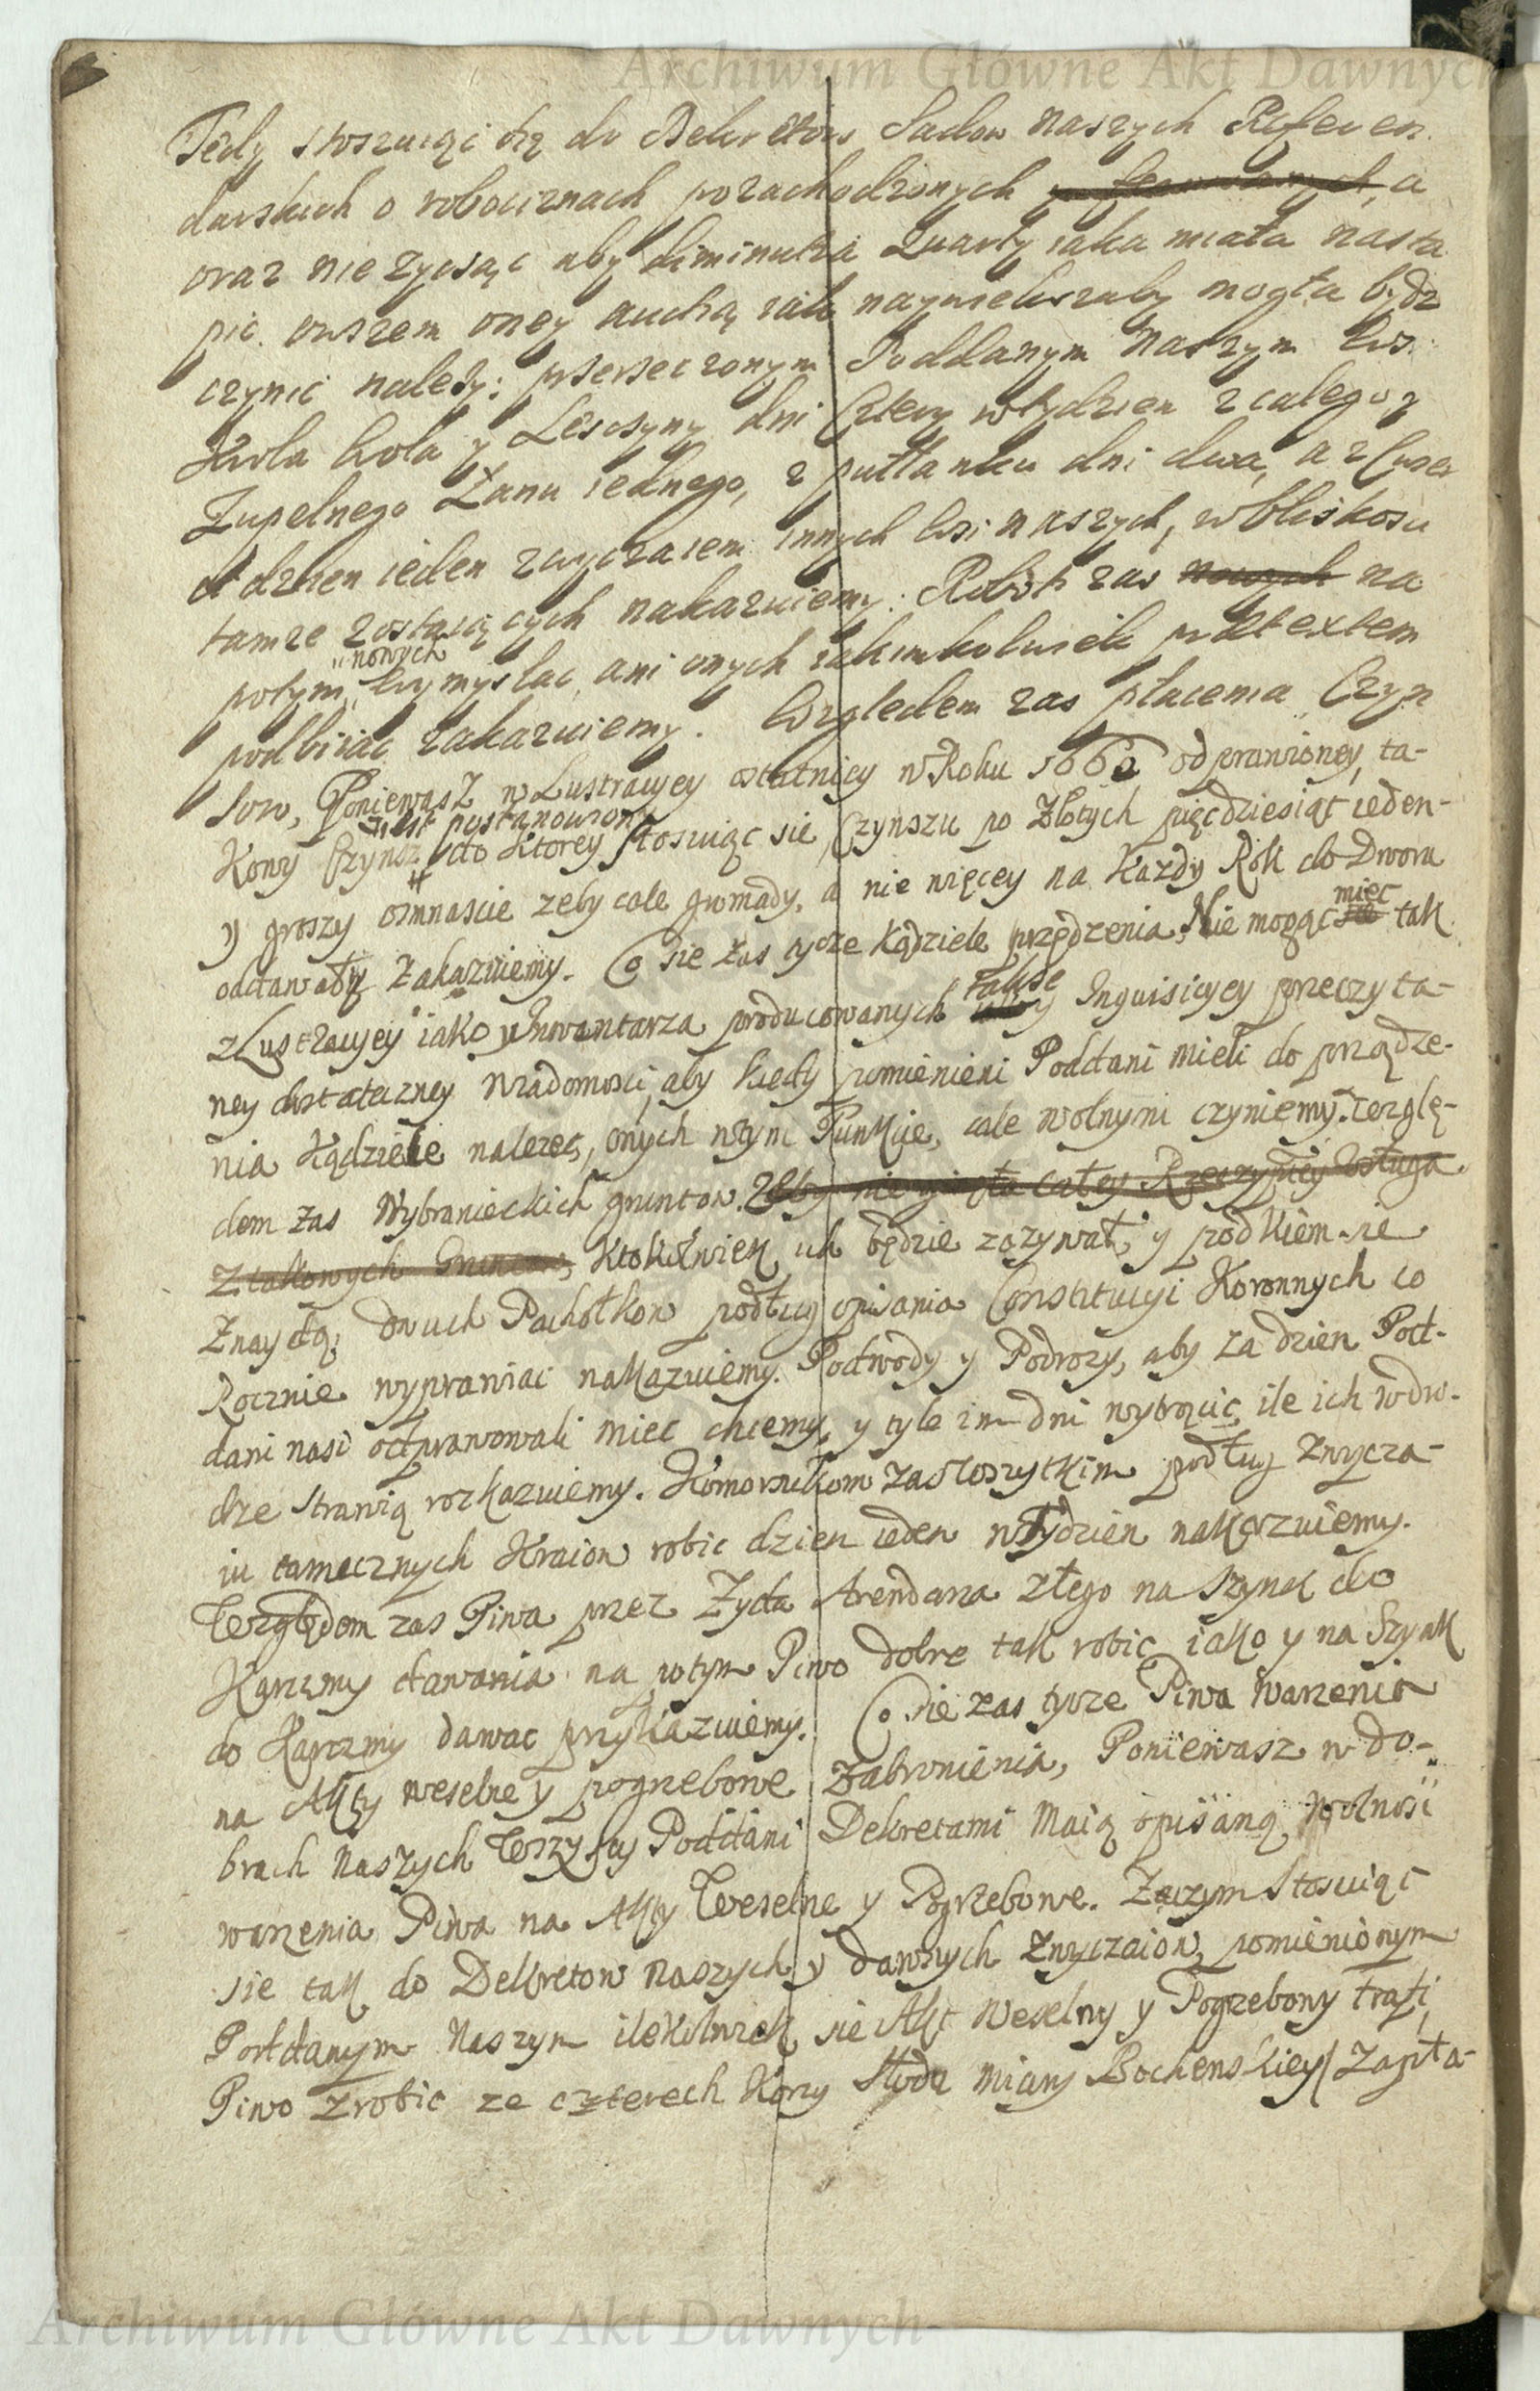 Archiwum Główne Akt Dawnych
Tedy stoszuiąc się do Dekretow Sądow Naszych Referen
darskich o robociznach pozachodzonych a
oraz nie zycząc aby diminutia Quarty iaka miała nasta
pic owszem oney auctią iak naywiększaby mogła bydz
czynic nalezy: przerzeczonym Poddanym Naszym Wsi
Krola Wola y Lesczyny dni Cztery w tydzien z całego y
Zupełnego Łanu iednego, z pułłanku dni dwa, a z Cwier
ci dzien ieden zwyczaiem innych Wsi naszych, w bliskosci
tamze zostaiących nakazuiemy: Robot zas nowych na
nowych
potym wymyslac, ani onych iakimkolwiek praetextem
podbiiac zakazuiemy. Względem zas płacenia Czyn
szow, Poniewasz w Lustracyey ostatniey w Roku 1662 odprawioney, ta-
iest postanowiony
Kowy Czynsz do ktorey stosuiąc się Czynszu po Złotych pięcdziesiąt ieden-
y groszy osmnascie zeby cale gromady, a nie więcey na Kazdy Rok do Dworu
miec
oddawały Zakazuiemy. Co sie zas tycze Kądziele przędzenia, Nie mogąc tak
takse
z Lustracyey iako y Inwentarza producowanych y Inquisicyey przeczyta-
ney dostateczney wiadomosci, aby kiedy pomienieni Poddani mieli do prządze-
nia Kądziele nalezec, onych w tym Punkcie, cale wolnymi czyniemy. Wzglę-
dem zas Wybranieckich gruntow. Zeby nie ginęła całey Rzeczyptey Usługa
z takowych Gruntow, Ktokolwiek ich będzie zazywał, y pod kiem sie
Znaydą, dwuch Pachołkow podług opisania Constitucyi Koronnych co
Rocznie wyprawiac nakazuiemy. Podwody y Podrozy, aby za dzien Pod-
dani nasi odprawowali miec chcemy, y tyle im dni wytrącic, ile ich w dro-
dze strawią roskazuiemy. Komornikom zas wszytkim podług zwycza-
iu tamecznych Kraiow robic dzien ieden w Tydzien nakazuiemy.
Względem zas Piwa przez Zyda Arendarza złego na Szynk do
Karczmy dawania na potym Piwo dobre tak robic iako y na Szynk
do Karczmy dawac przykazuiemy. Co sie zas tycze Piwa Warzenia
na Akty weselne y pogrzebowe zabronienia, Poniewasz w do-
brach Naszych Wszyscy Poddani Dekretami Maią opisaną Wolnosc
warzenia Piwa na Akty Weselne y Pogrzebowe. Zaczym Stosuiąc
sie tak do Dekretow Naszych y dawnych Zwyczaiow, pomienionym
Poddanym Naszym ilekolwiek sie Akt Weselny y Pogrzebowy trafi
Piwo zrobic ze czterech Korcy Słodu Miary Bochenskiey Zapła-
Archiwum Główne Akt Dawnych